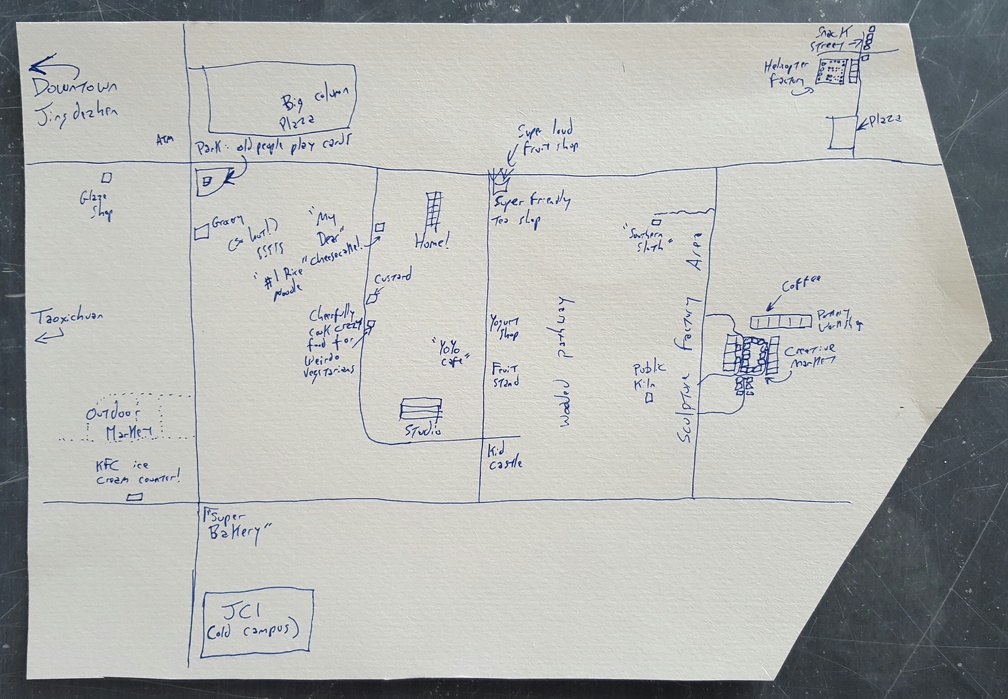 Downtown
Jingdezhen
Big column
Plaza
Snack
Street
Helicopter
Factory
Plaza
ATM
Park: old people play cards
Super loud
fruit shop
Glaze
Shop
Grocery
(so loud!)
$$$$$
"My
Dear"
cheesecake!
"#1 Rice
Noodle"
Home!
Super friendly
Tea shop
"Southern
Sloth"
Custard
Taoxichuan
Cheerfully
cook crazy
food for
weirdo
vegetarians
"YoYo
cafe"
Yogurt
shop
Fruit
stand
Wooded pathway
Public
Kiln
Sculpture Factory Area
Coffee
Pottery
Workshop
Creative
Market
Outdoor
Market
Studio
Kid
castle
KFC ice
cream counter!
"Super
Bakery"
JCI
(old campus)